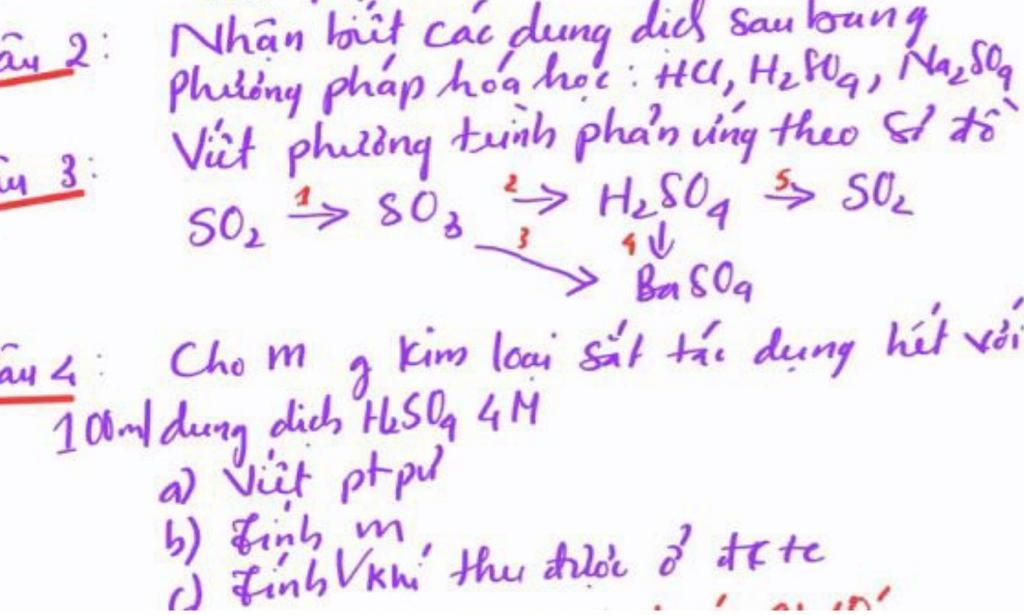 âu 2: Nhận biết các dung dịch sau bằng
phương pháp hóa học: HCl, H₂SO₄, Na₂SO₄
âu 3: Viết phương trình phản ứng theo sơ đồ
SO₂ 1→ SO₃ 2→ H₂SO₄ 5→ SO₂
3→ 4↓
BaSO₄
âu 4: Cho m g kim loại sắt tác dụng hết với
100ml dung dịch H₂SO₄ 4M
a) Viết ptpư
b) Tính m
c) Tính Vkhí thu được ở đktc